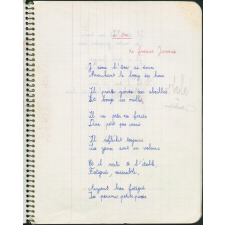 L'âne
de Francis Jammes
J'aime l'âne si doux
Marchant le long des houx
Il prend garde aux abeilles
Et bouge ses oreilles
Il va près des fossés
D'un petit pas cassé
Il réfléchit toujours
Ses yeux sont en velours
Et il reste à l'étable,
Fatigué, misérable.
Ayant bien fatigué
Ses pauvres petits pieds